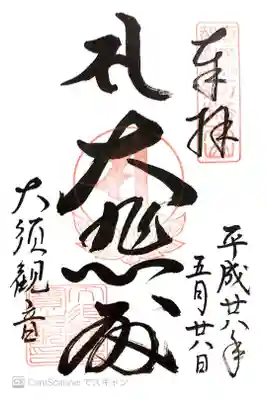 奉拝
平成廿八年
五月廿八日
大悲殿
大須観音
CamScanner でスキャン